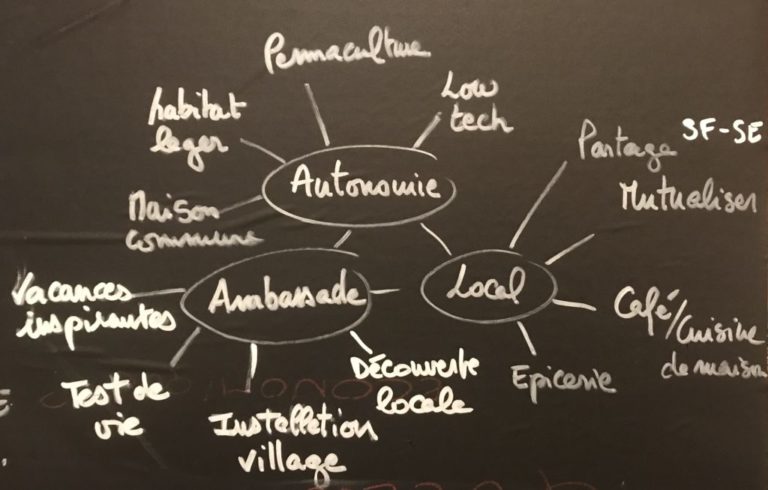 Permaculture
Low
tech
habitat
leger
SF-SE
Partage
Autonomie
Mutualiser
Maison
commune
Vacances
inspirantes
Ambassade
Local
Café/Cuisine
de maison
Découverte
locale
Epicerie
Test de
vie
Installetion
village